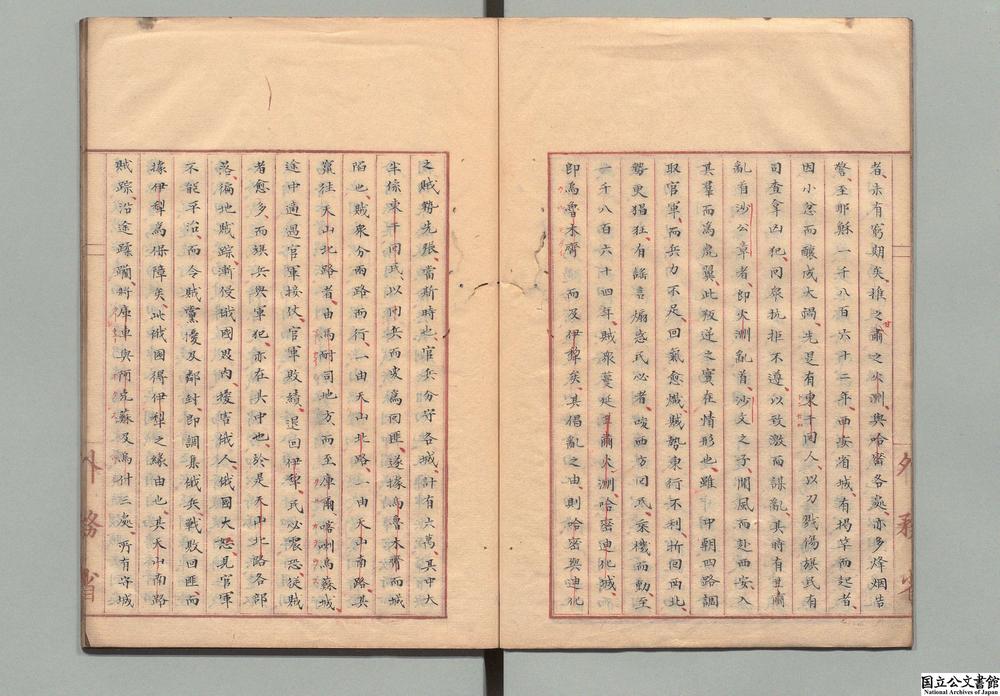 者、未有窮期矣、推之肅之火洲、與哈密各處、亦多烽烟告
甘
警、至耶穌一千八百六十二年、西安省城、有揭竿而起者、
因小忿而釀成大禍、先是有東干回人、以刀戕傷旗民、有
司查拿凶犯、回衆抗拒不遵、以致激而謀亂、其時有甘肅
亂首沙公章者、即火洲亂首、沙文之子、聞風而赴西安、入
其羣而為虎翼、此叛逆之實在情形也、雖中朝四路調
取官軍、而兵力不足、回氣愈熾、賊勢東行不利、折回西北、
勢更猖狂、有謠言煽惑民心者、唆西方回民、乘機而動、至
一千八百六十四年、賊衆蔓延肅火洲哈密迪化城、
即烏魯木齊而及伊犂矣、其倡亂之由、則哈密與迪化
之賊勢先張、當斯時也、官兵分守各城、計有六萬、其中大
半係東干回民、以回兵而変為回匪、遂據烏魯木齊而城
陷也、賊衆分兩路而行、一由天山北路、一由天山南路、其
竄往天山北路者、由瑪耐司地方、而至庫爾喀喇烏蘇城、
途中適遇官軍接仗、官軍敗績、退回伊犂、民心震恐、從賊
者愈多、而旗兵與軍犯、亦在其中也、於是天山北路各部
落、徧地賊踪、漸侵俄國界内、擾害俄人、俄國大怒、見官軍
不能平治、而令賊黨擾及鄰封、即調集俄兵、戰敗回匪、而
據伊犂為保障矣、此俄國得伊犂之緣由也、其天山南路
賊踪、沿途蹂躪、將庫車與阿克蘇及烏什三處、所有守城
外務省
外務省
国立公文書館
National Archives of Japan